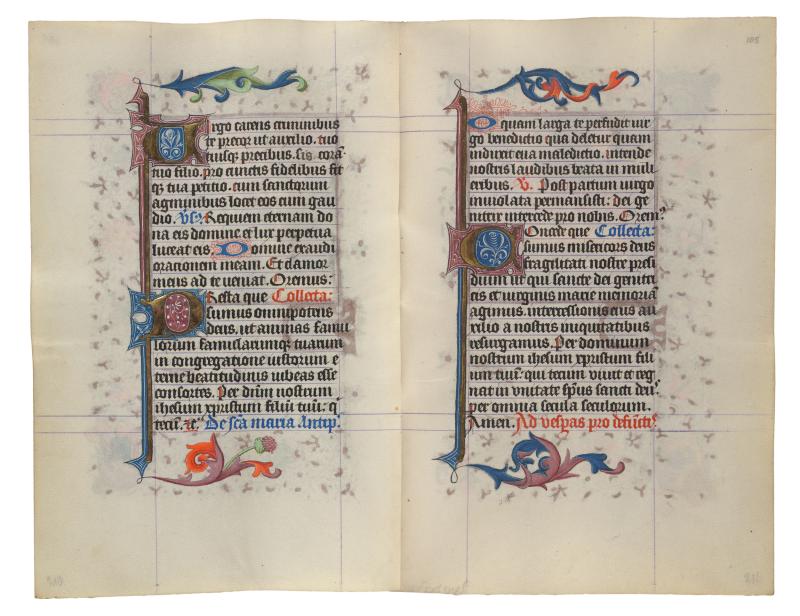 irgo carens criminibus
te precor ut auxilio. tuo
tuisq; precibus. sis corā
tuo filio. pro cunctis fidelibus fit
q; tua petitio. cum sanctorum
agminibus locet eos cum gau
dio. Requiem eternam do
na eis domine. et lux perpetua
luceat eis. Domine exaudi
orationem meam. Et clamor
meus ad te veniat. Oremus:
Resta que Collecta:
sumus omnipotens
deus. ut animas famu
lorum famularumq; tuarum
in congregatione iustorum e
terne beatitudinis iubeas esse
consortes. Per dn̄m nostrum
ihesum xpristum filiū tuū. q
tecū. De scā maria. Antip.
105
O quam larga te perfudit vir
go benedictio qua deletur quam
induxit eua maledictio. intende
nostris laudibus beata in muli
eribus. V. Post partum uirgo
inuiolata permansisti: dei ge
nitrix intercede pro nobis. Orem
Concede que Collecta:
sumus misericors deus
fragilitati nostre presi
dium ut qui sancte dei genitri
cis et uirginis marie memoriā
agimus. intercessionis eius au
xilio a nostris iniquitatibus
resurgamus. Per dominum
nostrum ihesum xpristum fili
um tuū. qui tecum uiuit et reg
nat in vnitate sp̄us sancti deu
per omnia secula seculorum.
Amen. Ad vespas pro defūctis